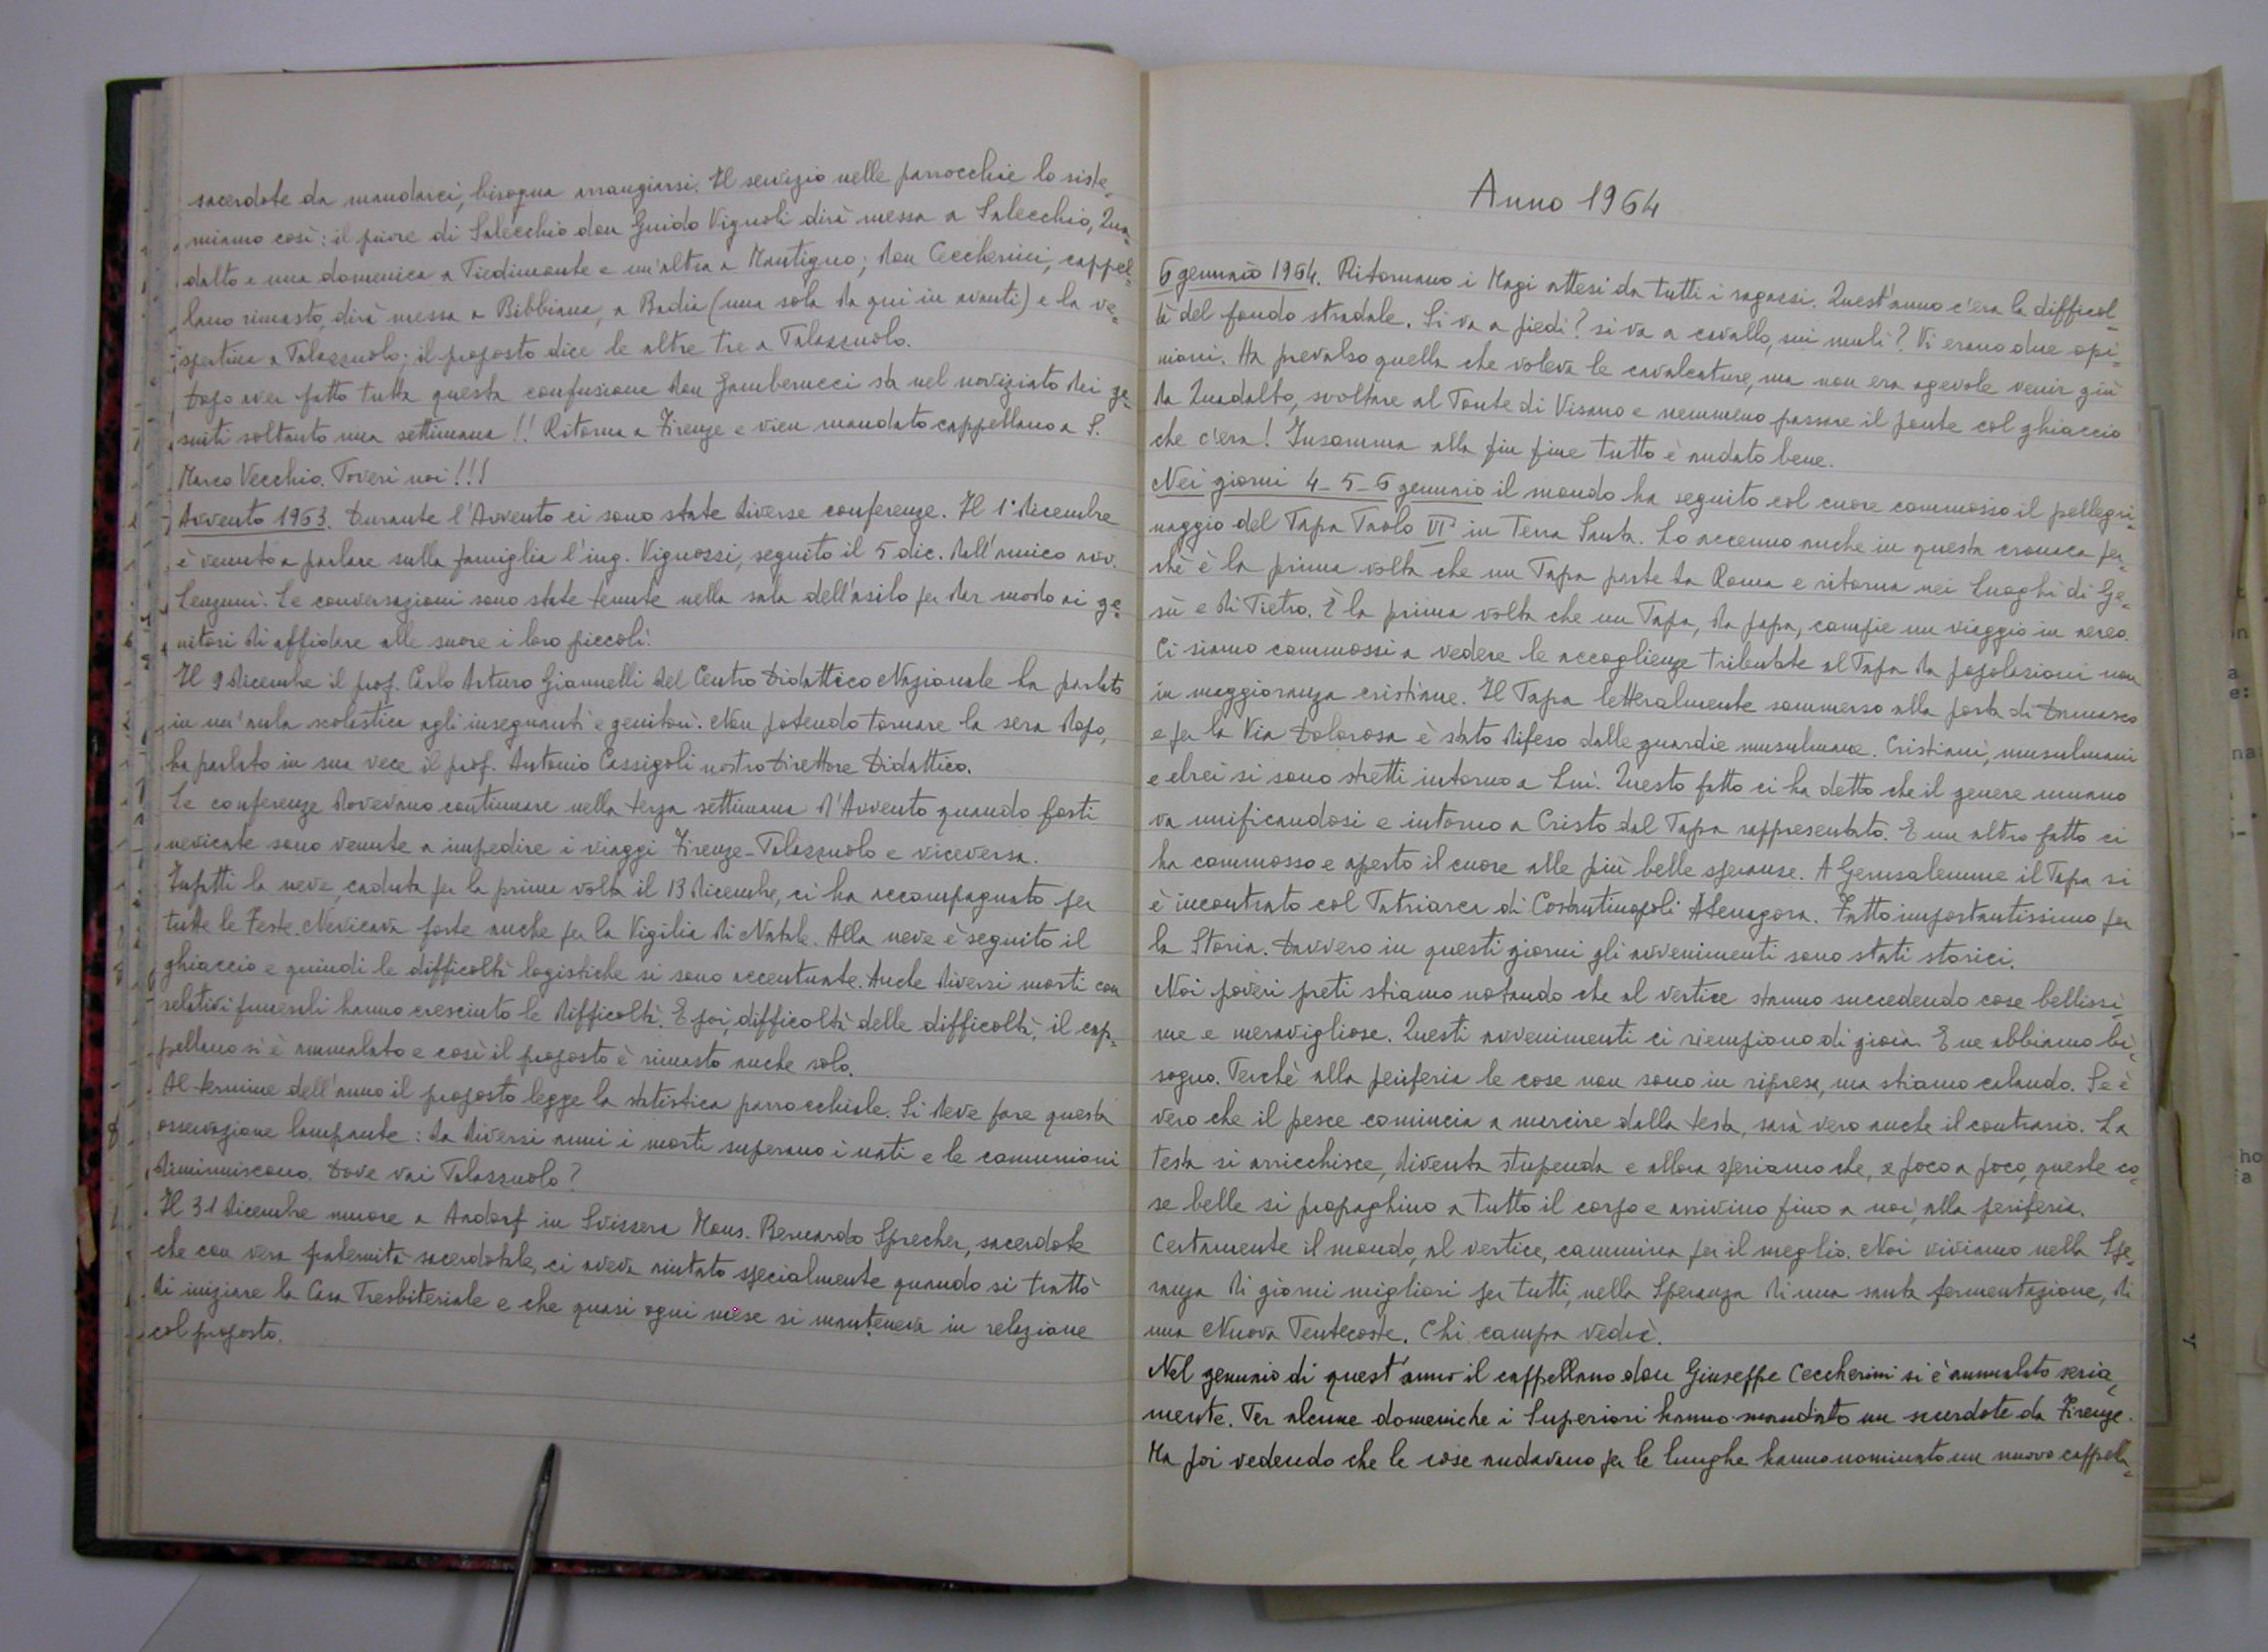 sacerdote da mandarci, bisogna arrangiarsi. Il servizio nelle parrocchie lo siste-
miamo così: il priore di Salecchio don Guido Vignoli dirà messa a Salecchio, Qua-
dalto e una domenica a Piedimonte e un'altra a Mantigno; don Ceccherini, cappel-
lano rimasto, dirà messa a Bibbiana, a Badia (una sola da qui in avanti) e la ve-
spertina a Palazzuolo; il proposto dice le altre tre a Palazzuolo.
Dopo aver fatto tutta questa confusione don Gamberucci sta nel noviziato dei ge-
suiti soltanto una settimana!! Ritorna a Firenze e vien mandato cappellano a S.
Marco Vecchio. Poveri noi!!!
Avvento 1963. Durante l'Avvento ci sono state diverse conferenze. Il 1° dicembre
è venuto a parlare sulla famiglia l'ing. Vignozzi, seguito il 5 dic. dall'amico avv.
Le conversazioni sono state tenute nella sala dell'asilo per dar modo ai ge-
nitori di affidare alle suore i loro piccoli.
Il 9 dicembre il prof. Carlo Arturo Giannelli del Centro Didattico Nazionale ha parlato
in un'aula scolastica agli insegnanti e genitori. Non potendo tornare la sera dopo,
ha parlato in sua vece il prof. Antonio Cassigoli nostro Direttore Didattico.
Le conferenze dovevano continuare nella terza settimana d'Avvento quando forti
nevicate sono venute a impedire i viaggi Firenze-Palazzuolo e viceversa.
Infatti la neve, caduta per la prima volta il 13 dicembre, ci ha accompagnato per
tutte le Feste. Nevicava forte anche per la Vigilia di Natale. Alla neve è seguito il
ghiaccio e quindi le difficoltà logistiche si sono accentuate. Anche diversi morti con
relativi funerali hanno cresciuto le difficoltà. E poi, difficoltà delle difficoltà, il cap-
pellano si è ammalato e così il proposto è rimasto anche solo.
Al termine dell'anno il proposto legge la statistica parrocchiale. Si deve fare questa
osservazione lampante: da diversi anni i morti superano i nati e le comunioni
diminuiscono. Dove vai Palazzuolo?
Il 31 dicembre muore a Andorf in Svizzera Mons. Bernardo Sprecher, sacerdote
che con vera fraternità sacerdotale, ci aveva aiutato specialmente quando si trattò
di iniziare la Casa Presbiteriale e che quasi ogni mese si manteneva in relazione
col proposto.
Anno 1964
6 gennaio 1964. Ritornano i Magi attesi da tutti i ragazzi. Quest'anno c'era la difficol-
tà del fondo stradale. Si va a piedi? si va a cavallo, sui muli? Vi erano due opi-
nioni. Ha prevalso quella che voleva le cavalcature, ma non era agevole venir giù
da Quadalto, svoltare al Ponte di Visano e nemmeno passare il ponte col ghiaccio
che c'era! Insomma alla fin fine tutto è andato bene.
Nei giorni 4-5-6 gennaio il mondo ha seguito col cuore commosso il pellegri-
naggio del Papa Paolo VI° in Terra Santa. Lo accenno anche in questa cronaca per-
chè è la prima volta che un Papa parte da Roma e ritorna nei Luoghi di Ge-
sù e di Pietro. È la prima volta che un Papa, da papa, compie un viaggio in aereo.
Ci siamo commossi a vedere le accoglienze tributate al Papa da popolazioni non
in maggioranza cristiane. Il Papa letteralmente sommerso alla porta di Damasco
e per la Via Dolorosa è stato difeso dalle guardie musulmane. Cristiani, musulmani
e ebrei si sono stretti intorno a Lui. Questo fatto ci ha detto che il genere umano
va unificandosi e intorno a Cristo dal Papa rappresentato. E un altro fatto ci
ha commosso e aperto il cuore alle più belle speranze. A Gerusalemme il Papa si
è incontrato col Patriarca di Costantinopoli Atenagora. Fatto importantissimo per
la Storia. Davvero in questi giorni gli avvenimenti sono stati storici.
Noi poveri preti stiamo notando che al vertice stanno succedendo cose bellissi-
me e meravigliose. Questi avvenimenti ci riempiono di gioia. E ne abbiamo bi-
sogno. Perchè alla periferia le cose non sono in ripresa, ma stiamo calando. Se è
vero che il pesce comincia a marcire dalla testa, sarà vero anche il contrario. La
testa si arricchisce, diventa stupenda e allora speriamo che, a poco a poco, queste co-
se belle si propaghino a tutto il corpo e arrivino fino a noi, alla periferia.
Certamente il mondo, al vertice, cammina per il meglio. Noi viviamo nella Spe-
ranza di giorni migliori per tutti, nella Speranza di una santa fermentazione, di
una Nuova Pentecoste. Chi campa vedrà.
Nel gennaio di quest'anno il cappellano don Giuseppe Ceccherini si è ammalato seria-
mente. Per alcune domeniche i Superiori hanno mandato un sacerdote da Firenze.
Ma poi vedendo che le cose andavano per le lunghe hanno nominato un nuovo cappella-